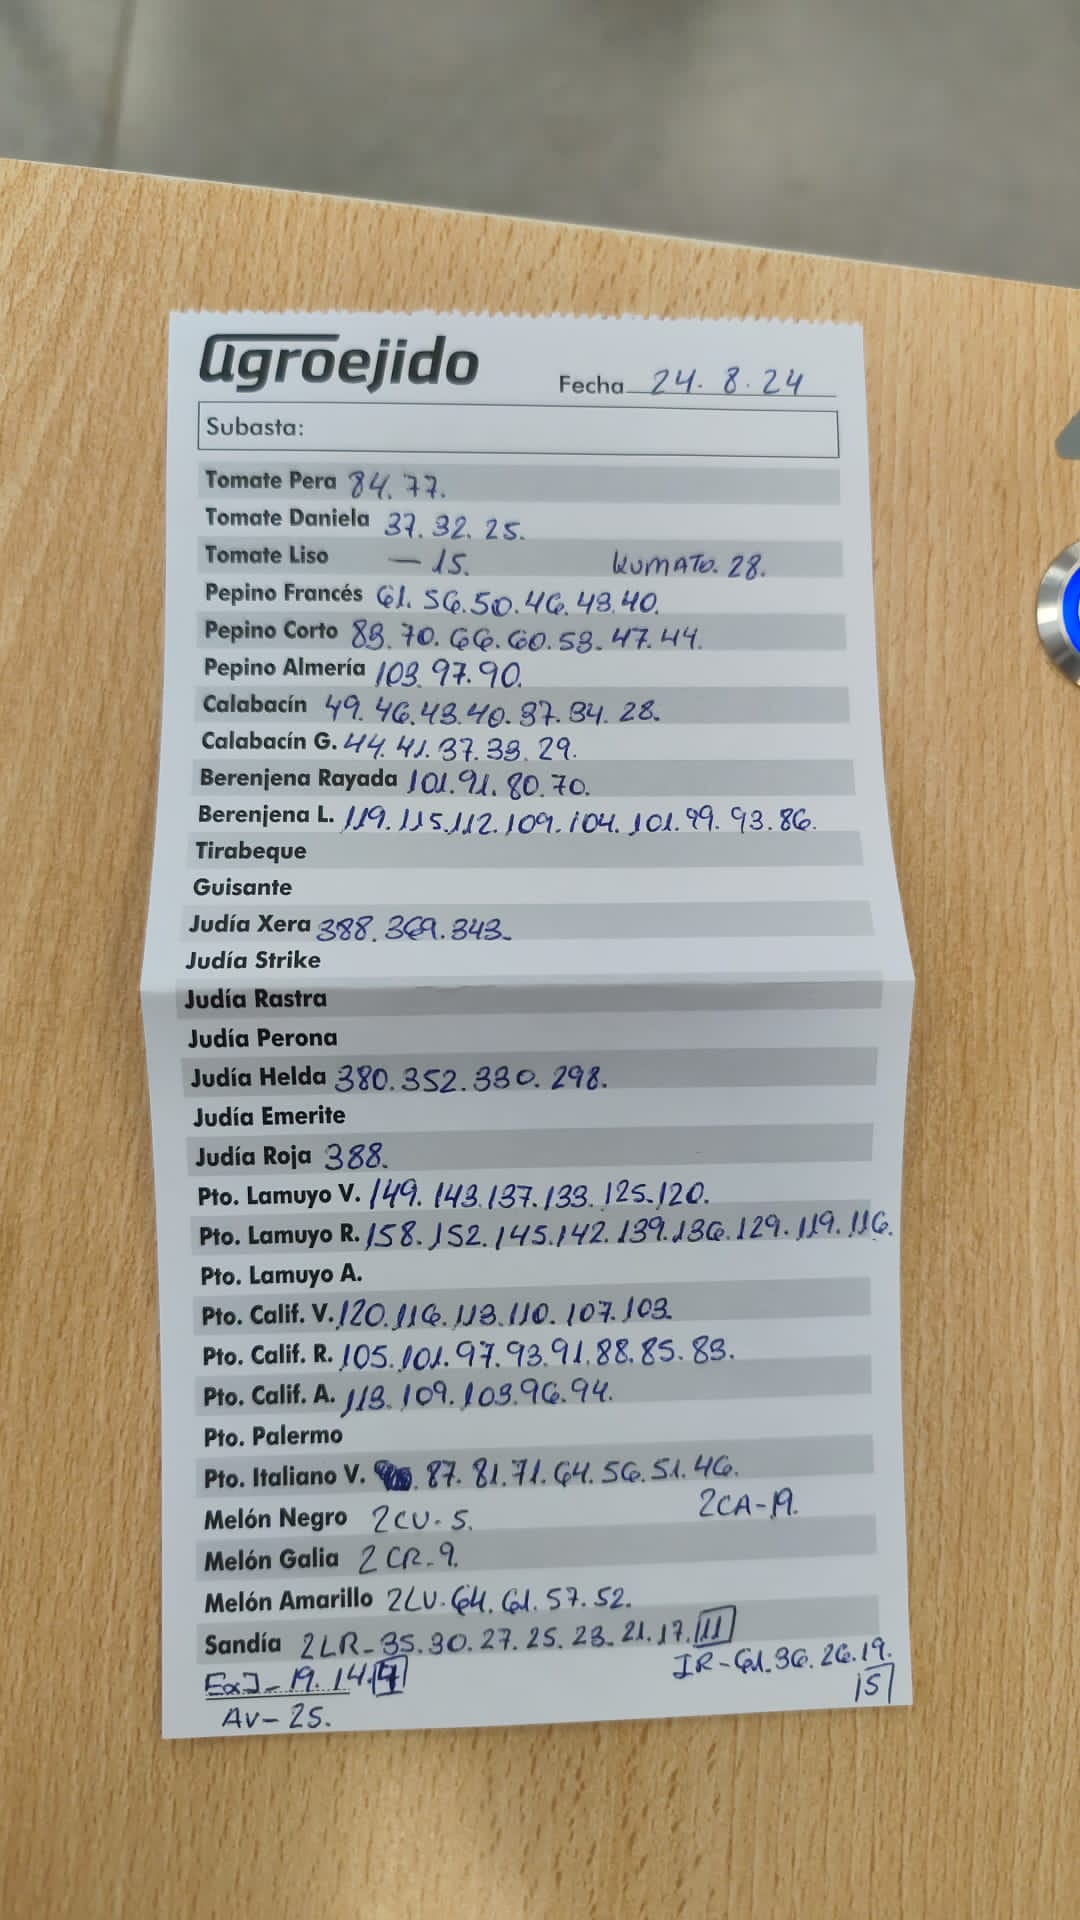 agroejido
Fecha 24. 8. 24
Subasta:
Tomate Pera 84. 77.
Tomate Daniela 37. 32. 25.
Tomate Liso — 15. KUMATO. 28.
Pepino Francés 61. 56. 50. 46. 43. 40.
Pepino Corto 83. 70. 66. 60. 53. 47. 44.
Pepino Almería 103. 97. 90.
Calabacín 49. 46. 43. 40. 37. 34. 28.
Calabacín G. 44. 41. 37. 33. 29.
Berenjena Rayada 101. 91. 80. 70.
Berenjena L. 119. 115. 112. 109. 104. 101. 99. 93. 86.
Tirabeque
Guisante
Judía Xera 388. 369. 343.
Judía Strike
Judía Rastra
Judía Perona
Judía Helda 380. 352. 330. 298.
Judía Emerite
Judía Roja 388.
Pto. Lamuyo V. 149. 143. 137. 133. 125. 120.
Pto. Lamuyo R. 158. 152. 145. 142. 139. 136. 129. 119. 116.
Pto. Lamuyo A.
Pto. Calif. V. 120. 116. 113. 110. 107. 103.
Pto. Calif. R. 105. 101. 97. 93. 91. 88. 85. 83.
Pto. Calif. A. 113. 109. 103. 96. 94.
Pto. Palermo
Pto. Italiano V. 87. 81. 71. 64. 56. 51. 46.
Melón Negro 2CV- 5. 2CA-19.
Melón Galia 2CR-9.
Melón Amarillo 2LV- 64. 61. 57. 52.
Sandía 2LR- 35. 30. 27. 25. 23. 21. 17. 11
- 19. 14. IR- 61. 36. 26. 19.
AV- 25. 15